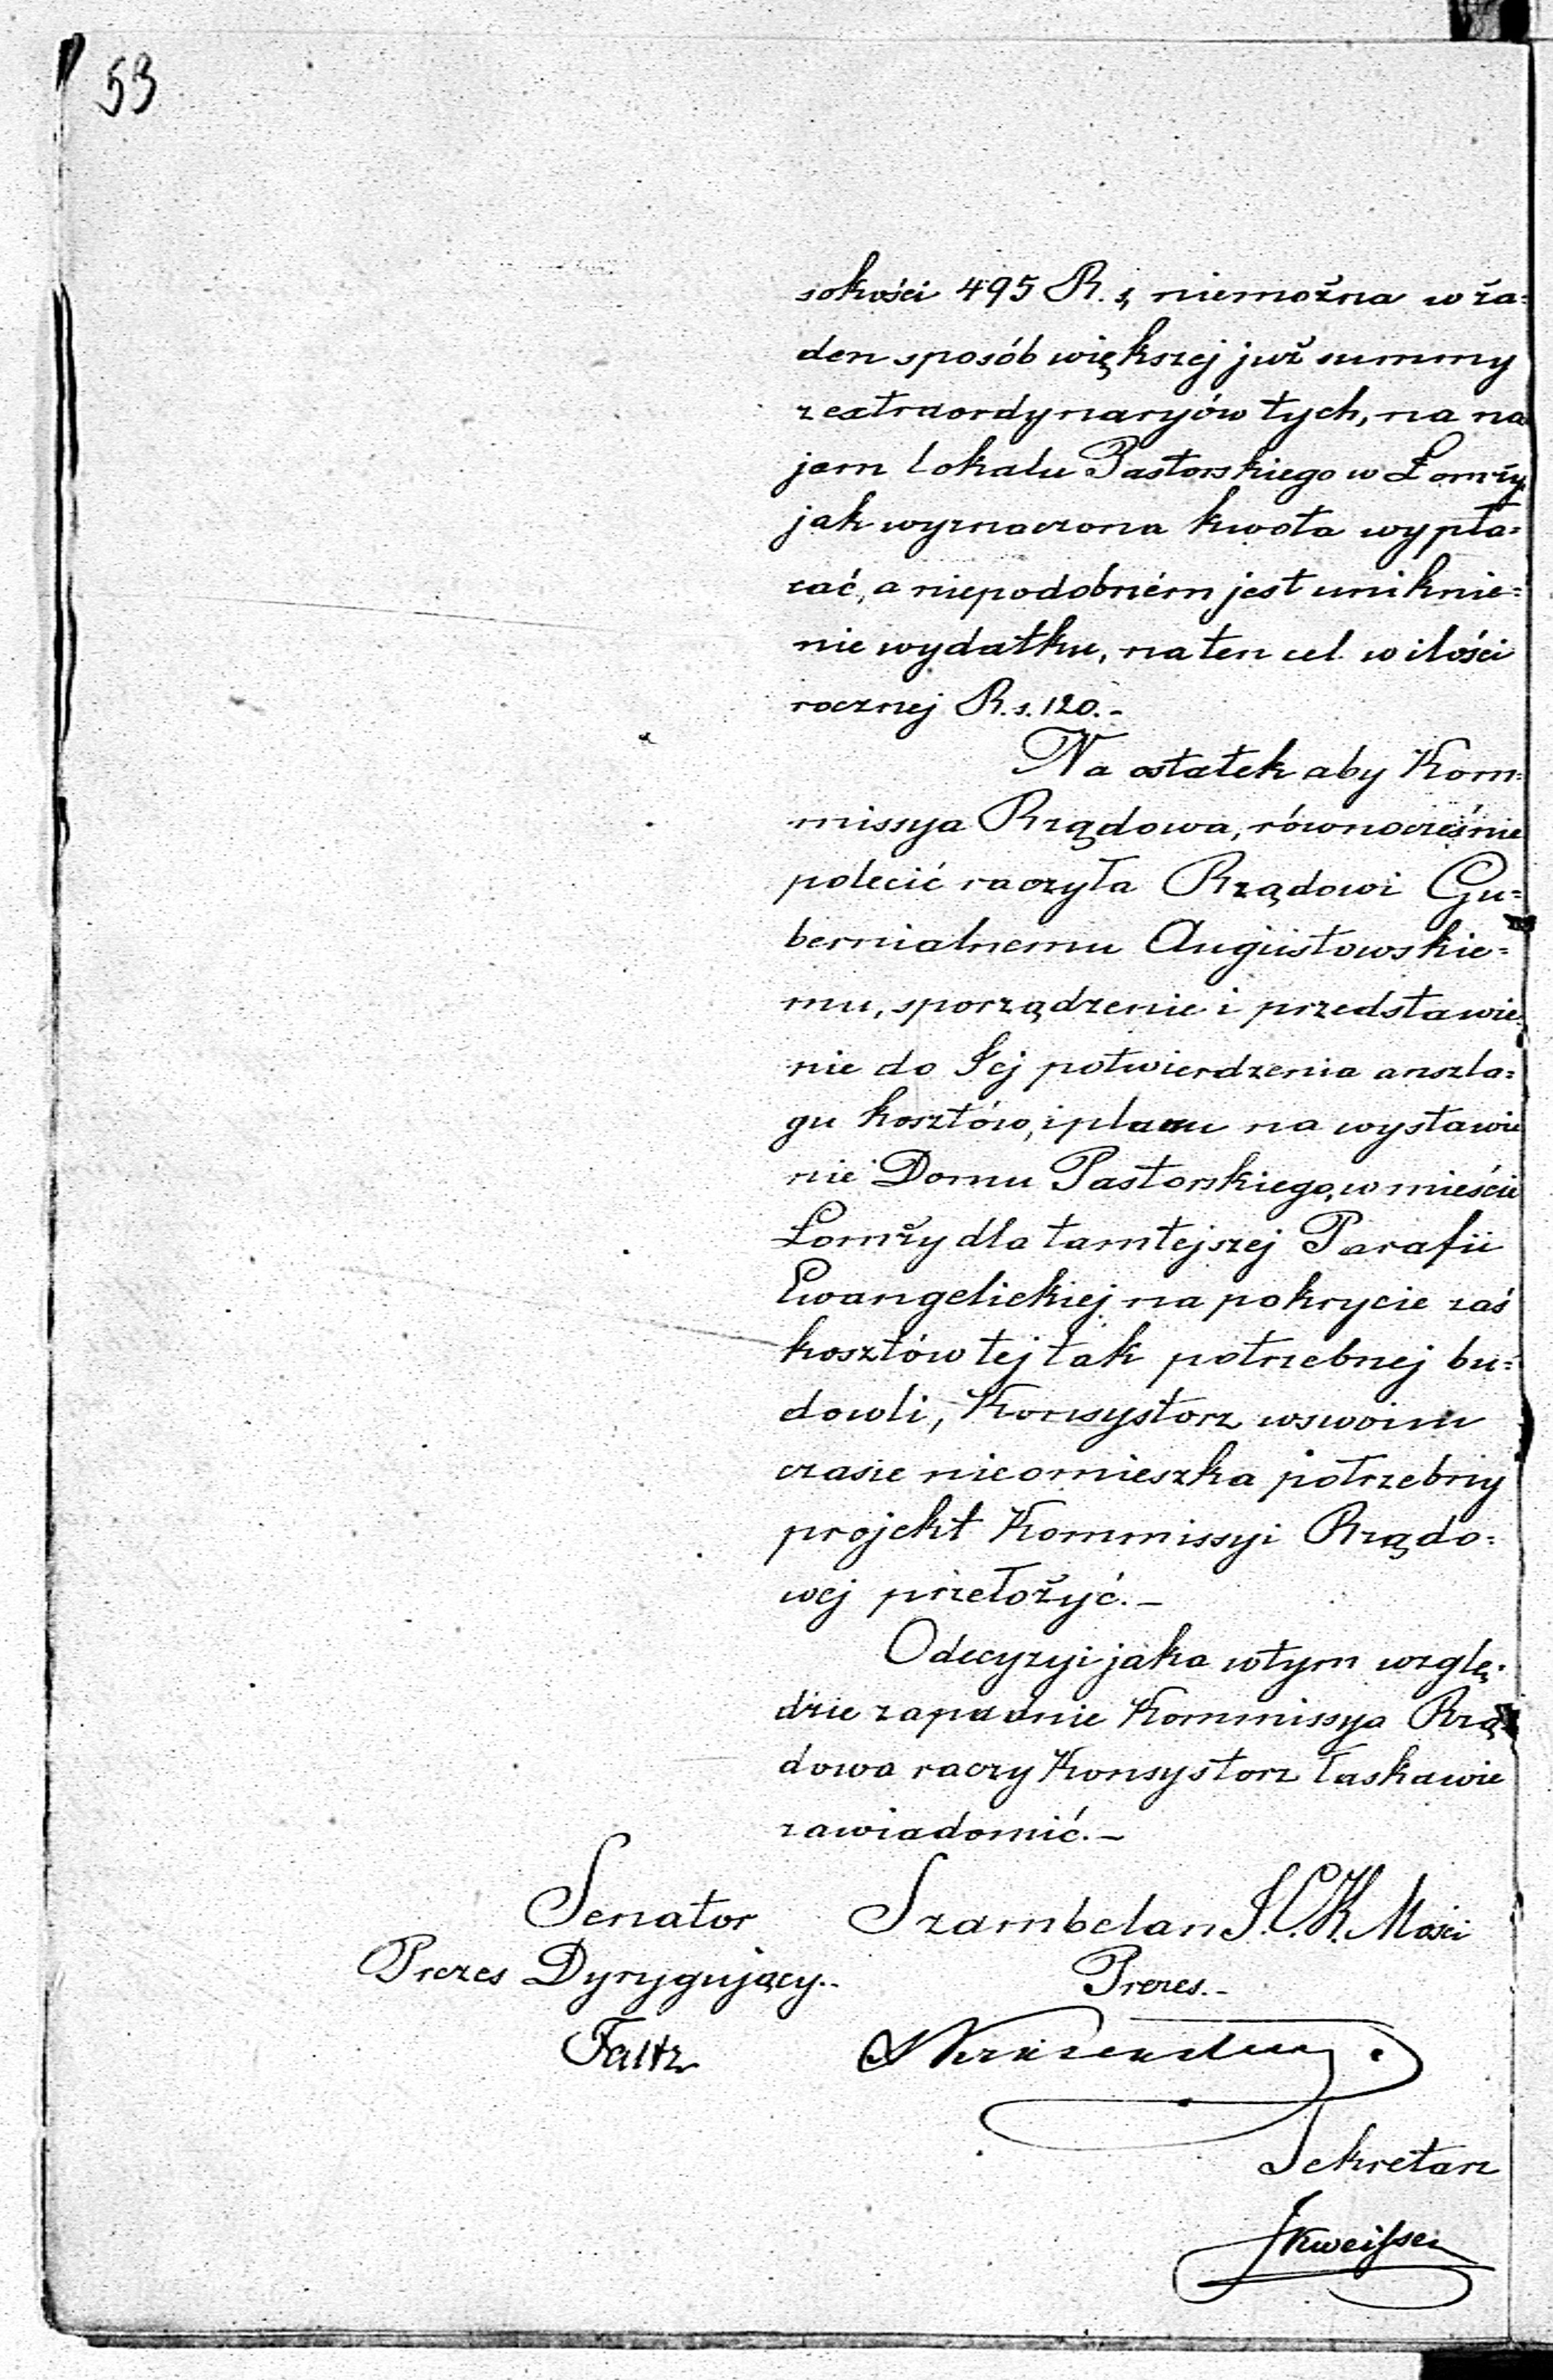 53
sokości 495 R. s, niemożna w ża=
den sposób większej już summy
z extraordynaryów tych, na na
jem lokalu Pastorskiego w Łomży
jak wyznaczona kwota wypła=
cać, a niepodobném jest uniknie=
nie wydatku, na ten cel w ilości
rocznej R. s. 120.-
Na ostatek aby Kom=
missya Rządowa, równocześnie
polecić raczyła Rządowi Gu=
bernialnemu Augustowskie=
mu, sporządzenie i przedstawie
nie do Jej potwierdzenia anszla=
gu kosztów, i planu na wystawie
nie Domu Pastorskiego, w mieście
Łomży dla tamtejszej Parafii
Ewangelickiej na pokrycie zaś
kosztów tej tak potrzebnej bu=
dowli, Konsystorz wswoim
czasie nieomieszka potrzebny
projekt Kommissyi Rządo=
wej przełożyć.-
Odecyzyi jaka wtym wzglę=
dzie zapadnie Kommissya Rzą
dowa raczy Konsystorz łaskawie
zawiadomić.-
Senator Szambelan J. C. K. Mości
Prezes Dyrygujący.- Prezes.-
Faltz
Sekretarz